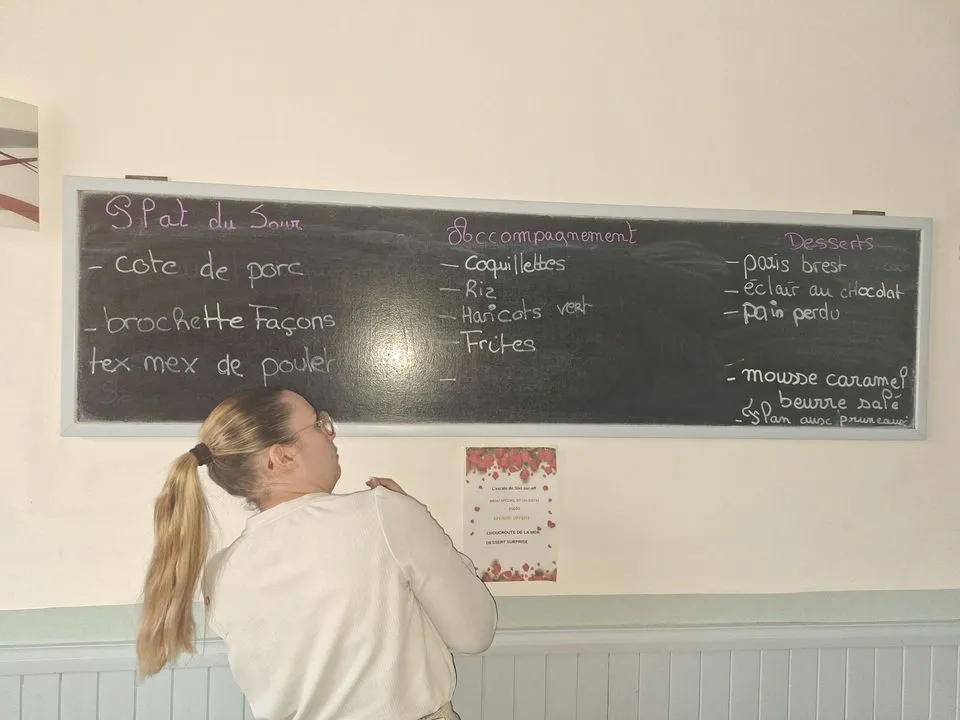 Plat du Jour
- cote de porc
- brochette Façons
tex mex de poulet
Accompagnement
- Coquillettes
- Riz
- Haricots vert
- Frites
-
Desserts
- paris brest
- éclair au chocolat
- pain perdu
- mousse caramel
beurre salé
- Flan aux pruneaux
L'escale de Sixt-sur-aff
MENU SPÉCIAL ST VALENTIN
APERITIF OFFERT
CHOUCROUTE DE LA MER
DESSERT SURPRISE